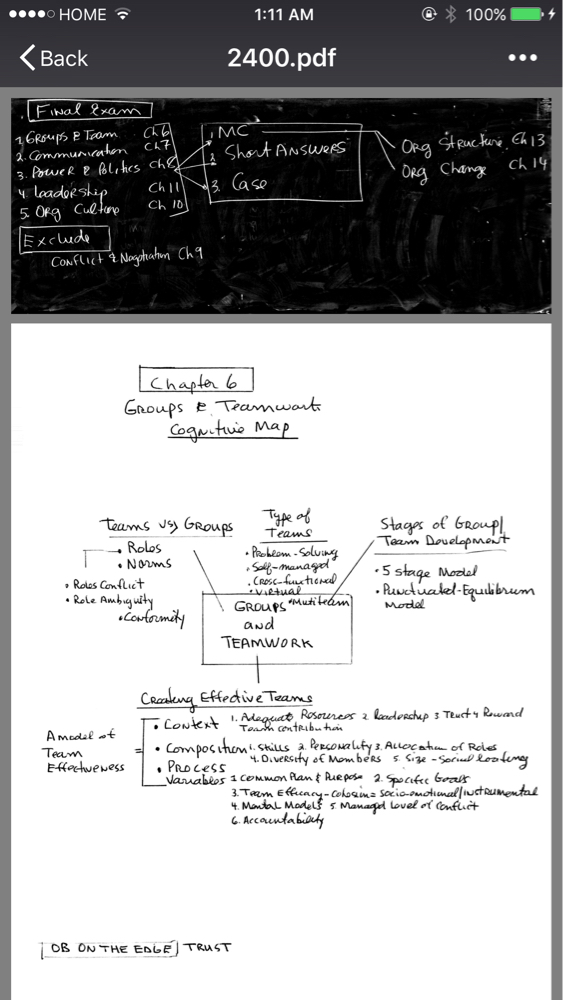 HOME 1:11 AM 100%
Back 2400.pdf
Final Exam
1. Groups & Team Ch 6
2. Communication Ch 7
3. Power & Politics Ch 8
4. Leadership Ch 11
5. Org Culture Ch 10
1. MC
2. Short ANSWERS
3. Case
Org Structure Ch 13
Org Change Ch 14
Exclude
Conflict & Negotiation Ch 9
Chapter 6
Groups & Teamwork
Cognitive Map
Teams vs Groups
• Roles
• Norms
• Roles Conflict
• Role Ambiguity
• Conformity
Type of
Teams
• Problem-Solving
• Self-managed
• Cross-functional
• Virtual
• Mutiteam
Stages of Group/
Team Development
• 5 Stage Model
• Punctuated-Equilibrum
Model
GROUPS
and
TEAMWORK
Creating Effective Teams
A model of
Team
Effectiveness
=
• Context 1. Adequate Resources 2 Leadership 3 Trust 4 Reward
Team contribution
• Composition 1. Skills 2. Personality 3. Allocation of Roles
4. Diversity of Members 5. Size - Social loafing
• Process
Variables 1 Common Plan & Purpose 2. Specific Goals
3. Team Efficacy - Cohesion = Socio-emotional/instrumental
4. Mental Models 5 Managed Level of Conflict
6. Accountability
OB ON THE EDGE TRUST